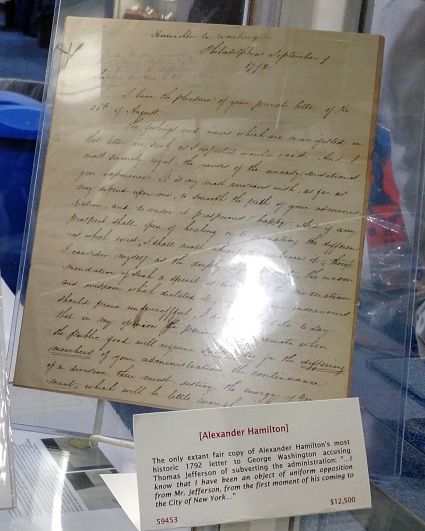 Hamilton to Washington
Philadelphia September 9
1792
I have the pleasure of your private letter of the
26th of August.
The feelings and views which are manifested in
that letter are such as I expected would exist. And I
most sincerely regret the causes of the uneasy sensations
you experience. It is my most anxious wish, as far as
may depend upon me, to smooth the path of your adminis
tration, and to render it prosperous & happy. And if any
prospect shall open of healing or terminating the differen
ces which exist, I shall most
I consider myself as the deeply
mendation of such a spirit is
and wisdom which dictated
should prove unsuccessful, I
that in my opinion the period
the public good will require for the differing
members of your administration the continuance
of a division there must destroy the energy of Gov
ment, which will be little enough
[Alexander Hamilton]
The only extant fair copy of Alexander Hamilton's most
historic 1792 letter to George Washington accusing
Thomas Jefferson of subverting the administration: "...I
know that I have been an object of uniform opposition
from Mr. Jefferson, from the first moment of his coming to
the City of New York..."
59453 $12,500